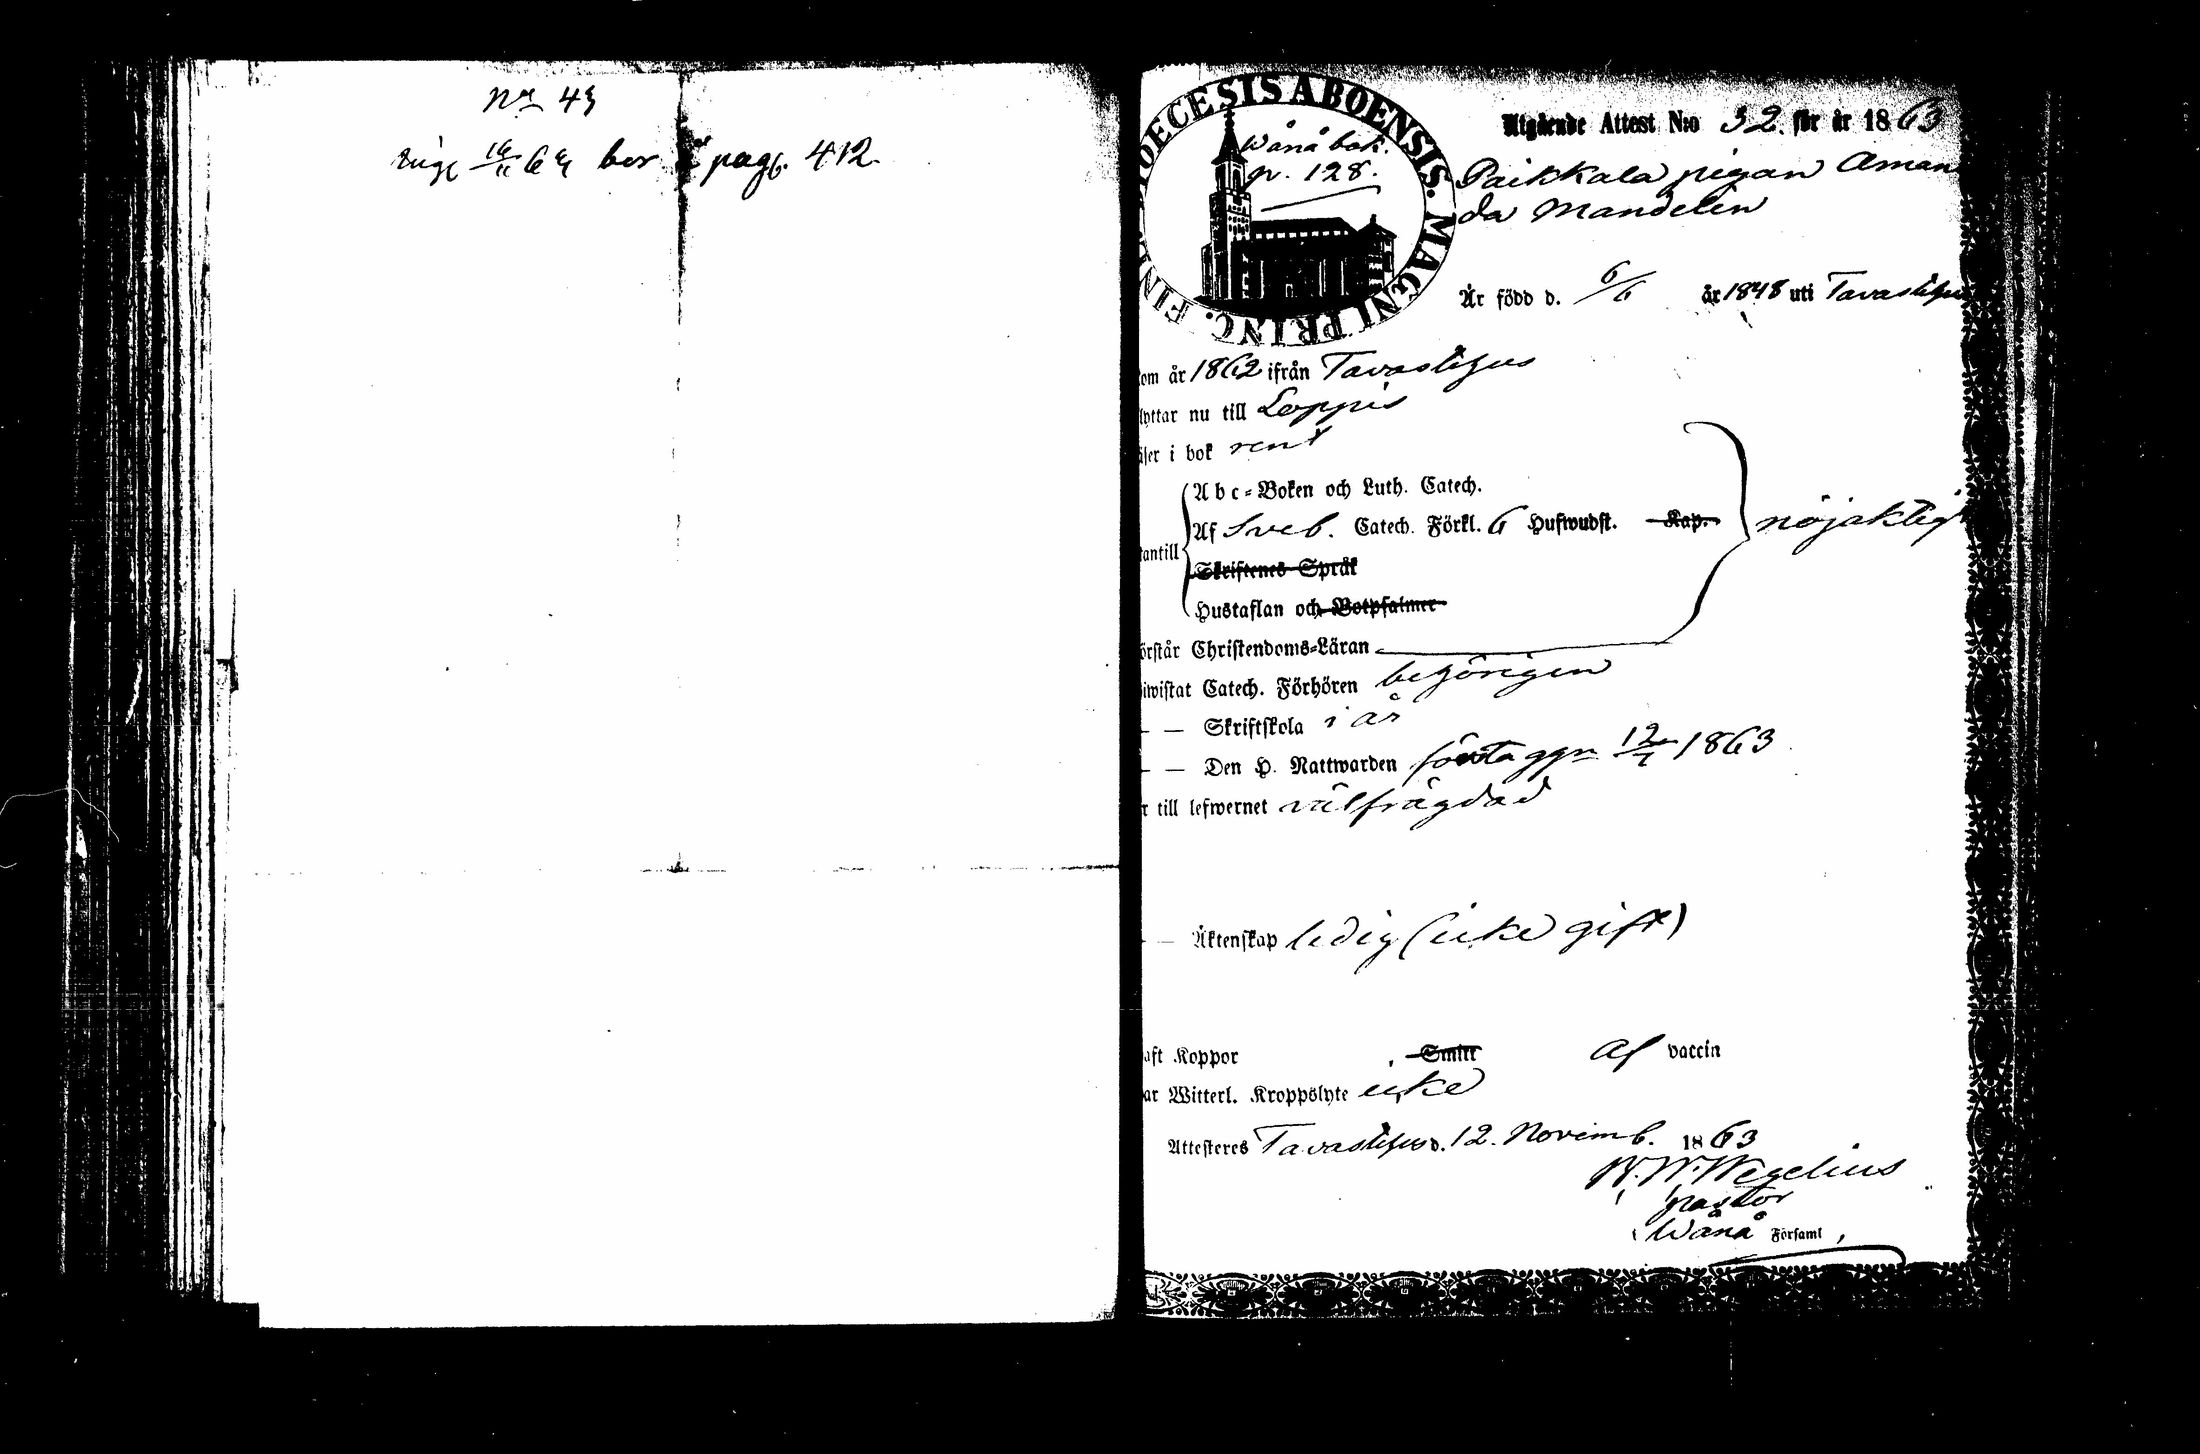 No 43
ing. 16/11 63 bor å pag. 412.
DIOECESIS ABOENSIS. MAGNI PRINC. FINL.
Wånå bok.
p. 128.
Utgående Attest N:o 32. för år 1863
Paikkala pigan Aman
da Mandelin
Är född d. 6/6 år 1848 uti Tavastehus
kom år 1862 ifrån Tavastehus
lyttar nu till Loppis
äser i bok rent
Abc-Boken och Luth. Catech.
Af Sveb. Catech. Förkl. 6 Hufwudst. Kap.
nöjaktigt
tantill
Skriftenes Språk
Hustaflan och Botpsalmer
örstår Christendoms-Läran
iwistat Catech. Förhören behörigen
— — Skriftskola i år
— — Den H. Nattwarden första ggn 12/7 1863
r till lefwernet välfrägdad
— — Äktenskap ledig (icke gift)
aft Koppor Smitt af vaccin
ar Witterl. Kroppslyte icke
Attesteres Tavastehus d. 12. Novemb. 1863
W. W. Wegelius
pastor
Wånå Församl